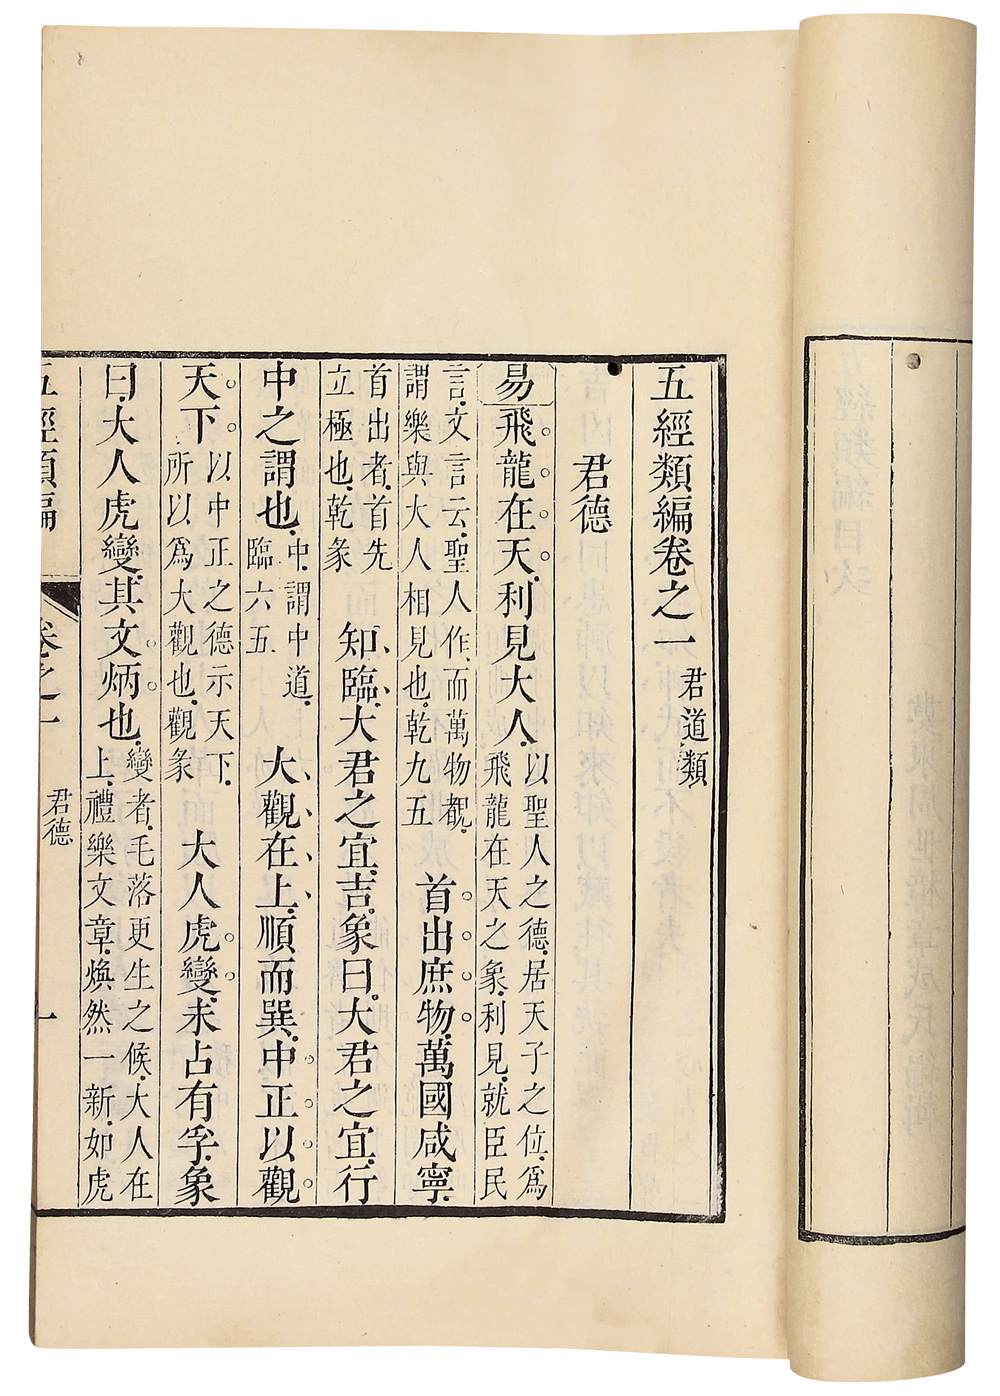 五經類編卷之一 君道類
君德
易 飛龍在天利見大人 以聖人之德居天子之位爲
飛龍在天之象利見就臣民
言文言云聖人作而萬物覩
謂樂與大人相見也乾九五 首出庶物萬國咸寧
首出者首先
立極也乾彖 知臨大君之宜吉象曰大君之宜行
中之謂也 中謂中道
臨六五 大觀在上順而巽中正以觀
天下 以中正之德示天下
所以爲大觀也觀彖 大人虎變未占有孚象
曰大人虎變其文炳也 變者毛落更生之候大人在
上禮樂文章煥然一新如虎
五經類編 卷之一 君德 一